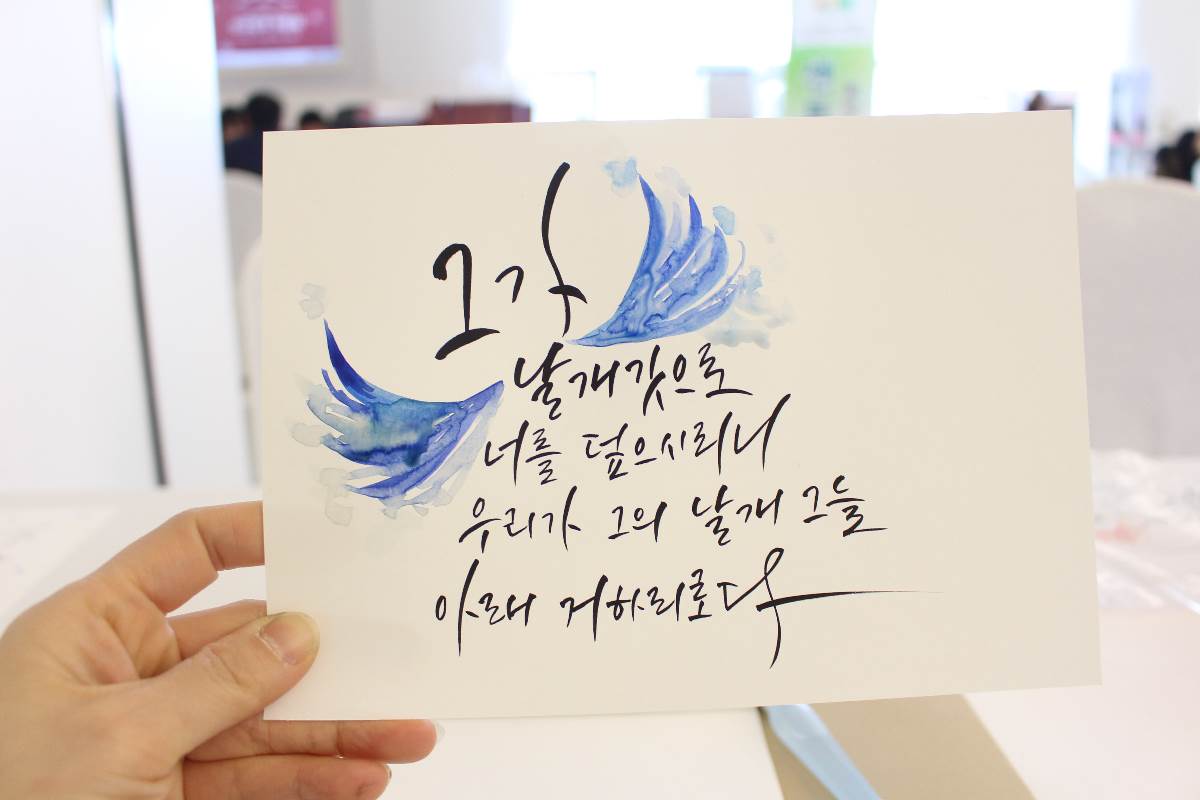 그가
날개깃으로
너를 덮으시리니
우리가 그의 날개 그늘
아래 거하리로다